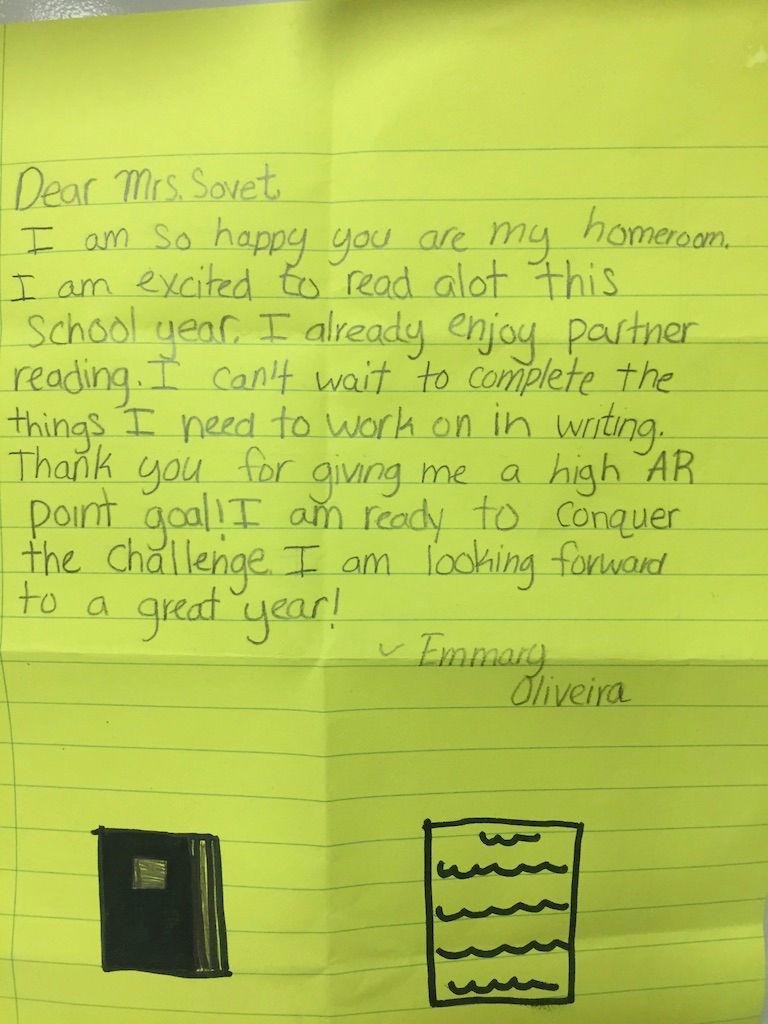 Dear Mrs. Sovet
I am so happy you are my homeroom.
I am excited to read alot this
School year. I already enjoy partner
reading. I can't wait to complete the
things I need to work on in writing.
Thank you for giving me a high AR
point goal! I am ready to conquer
the challenge. I am looking forward
to a great year!
~ Emmary
Oliveira